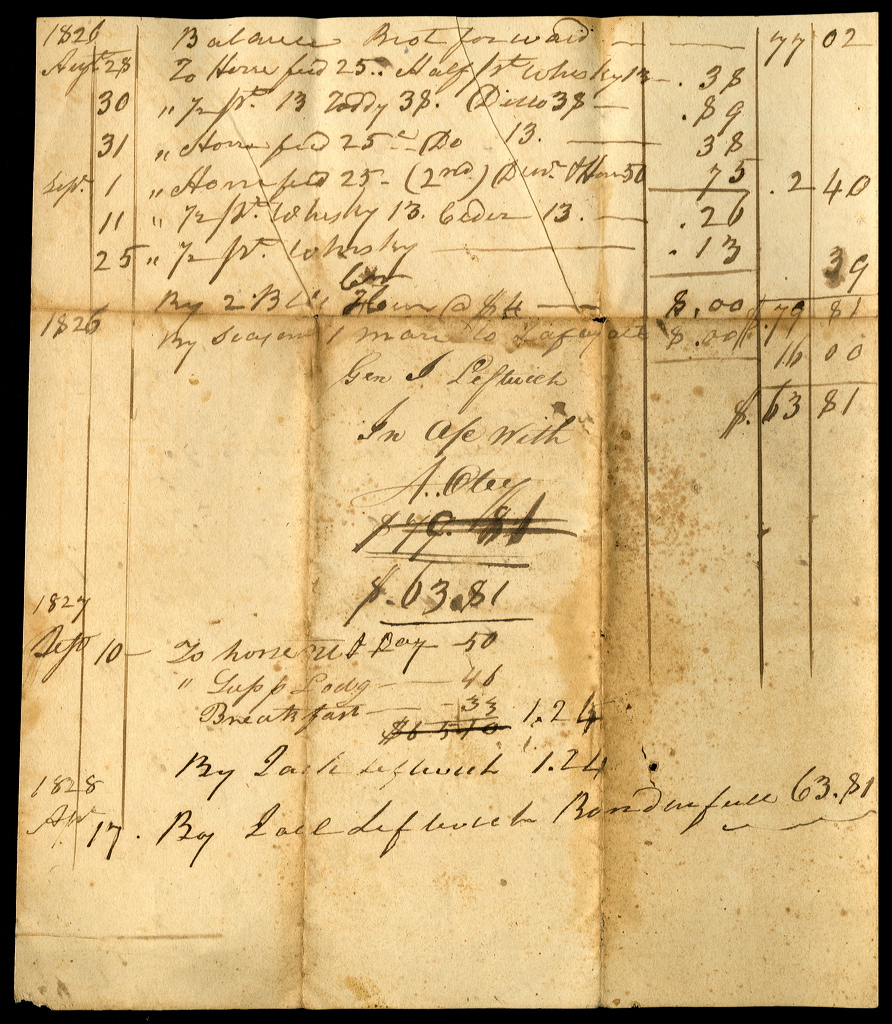 1826 Balance Brot forward — — 77 02
Augt 28 To Horse feed 25.. Half pt Whisky 13 - . 38
30 " ½ pt. 13 Toddy 38. Ditto 38 — . 89
31 " Horse feed 25 - Do 13. — 38
Sept. 1 " Horse feed 25 - (2nd) Dinr. & Horse 50 75 . 2 40
11 " ½ pt. Whisky 13. Ceder 13. — . 26
25 " ½ pt. Whisky — . 13 39
Corn
By 2 Bls @ $4 — 8.00 $.79 81
1826 By Season 1 mare to Lafayette 8.00 16 00
Gen J Leftwich $.63 81
In a/c With
A. Otey
$79.81
$.63.81
1827
Sept 10 — To horse & Day 50
" Supp Lodg — 41
Breakfast — 33 1.24
By Jack Leftwich 1.24
1828
Apr 17. By Jack Leftwich Bond in full 63.81